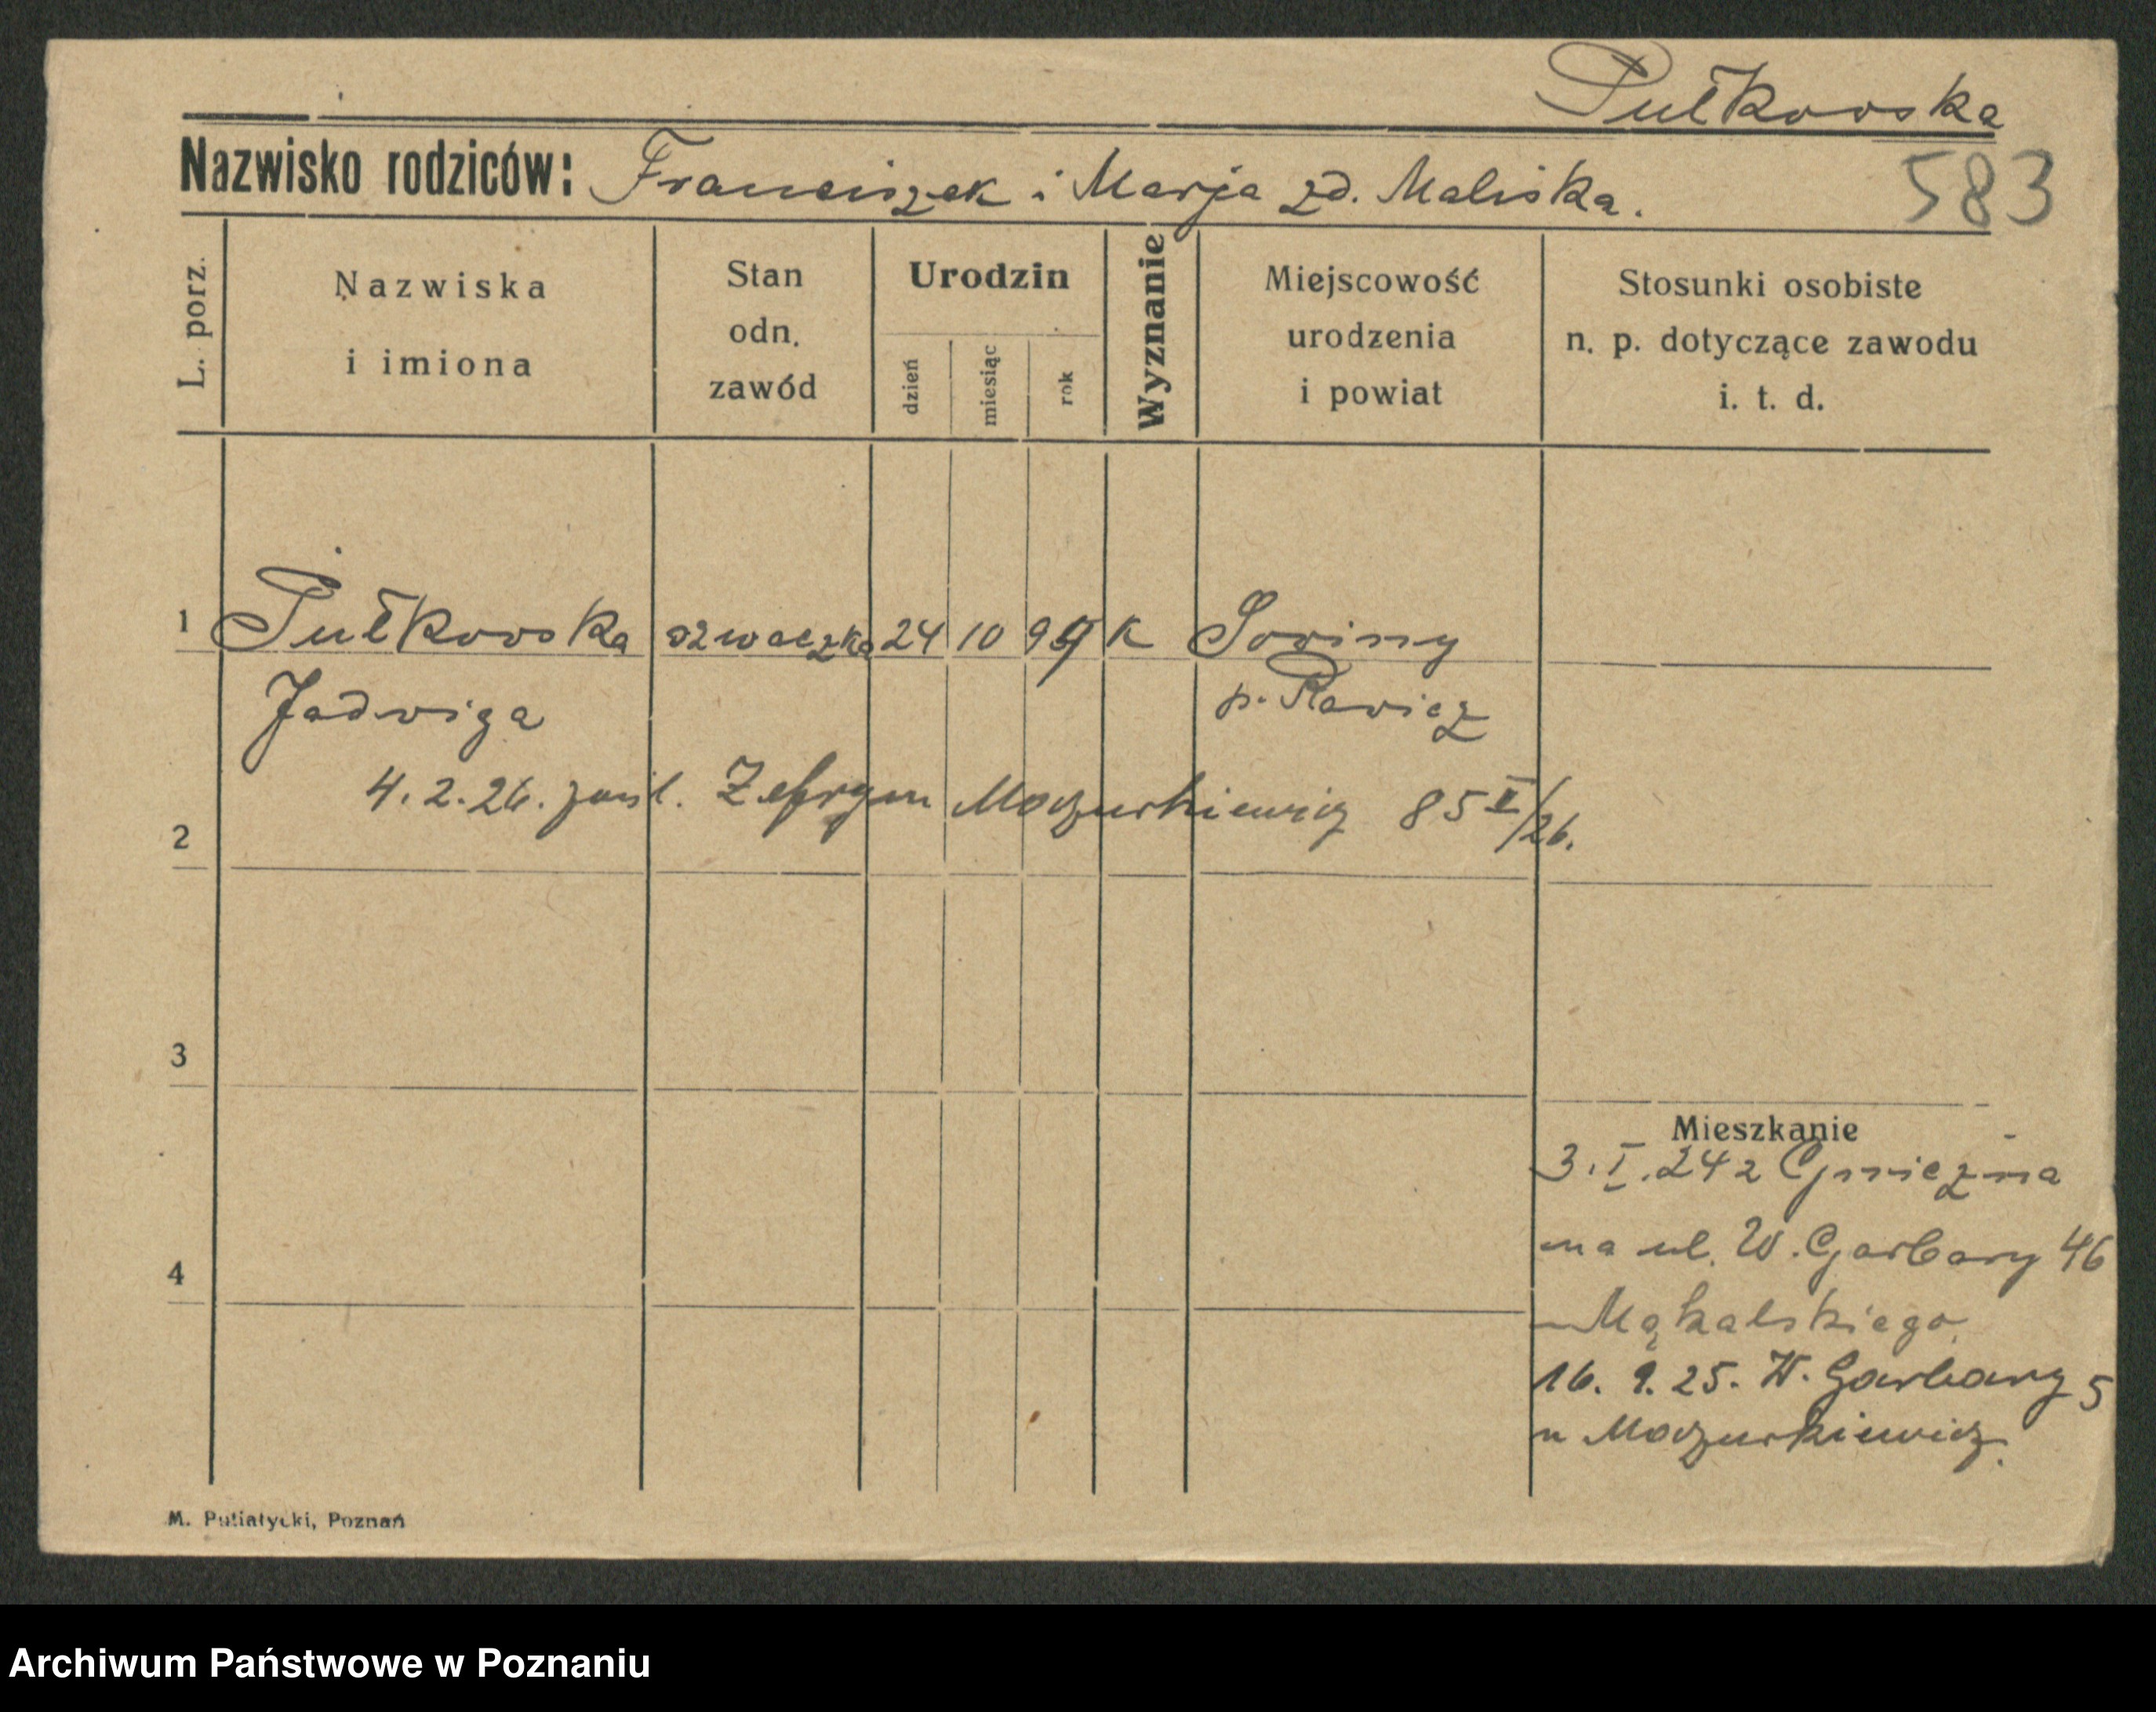 Pułkowska
Nazwisko rodziców: Franciszek i Marja zd. Maliska.
583
L. porz.
Nazwiska
i imiona
Stan
odn.
zawód
Urodzin
dzień
miesiąc
rok
Wyznanie
Miejscowość
urodzenia
i powiat
Stosunki osobiste
n. p. dotyczące zawodu
i. t. d.
1 Pułkowska szwaczka 24 10 99 K Sowiny
Jadwiga p. Rawicz
4. 2. 26. zaśl. Zefryn Moczurkiewicz 85 II/26.
2
3
4
Mieszkanie
3. I. 24 z Gniezna
na ul. W. Garbary 46
Mąkalskiego
16. 9. 25. W. Garbary 5
u Moczurkiewicz.
M. Putiatycki, Poznań
Archiwum Państwowe w Poznaniu